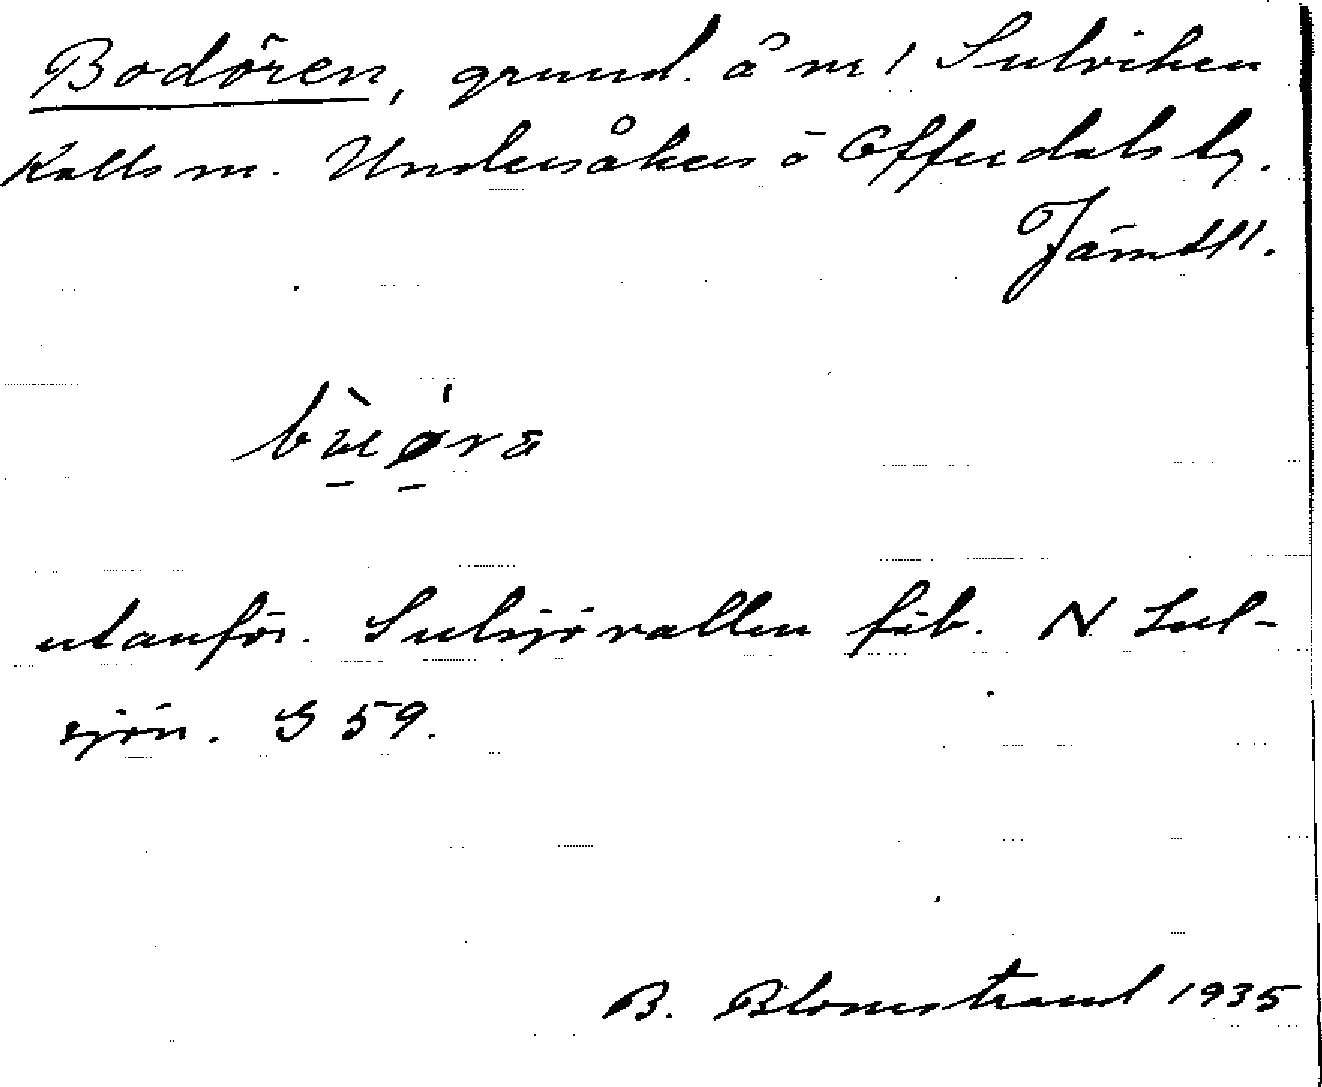 Bodören, grund. å nr 1 Sulviken
Kalls sn. Undersåkers o Offerdals tg.
Jämtl.
bu̠øra
utanför. Sulsjövallen fäb. N. Sul-
sjön. S 59.
B. Blomstrand 1935